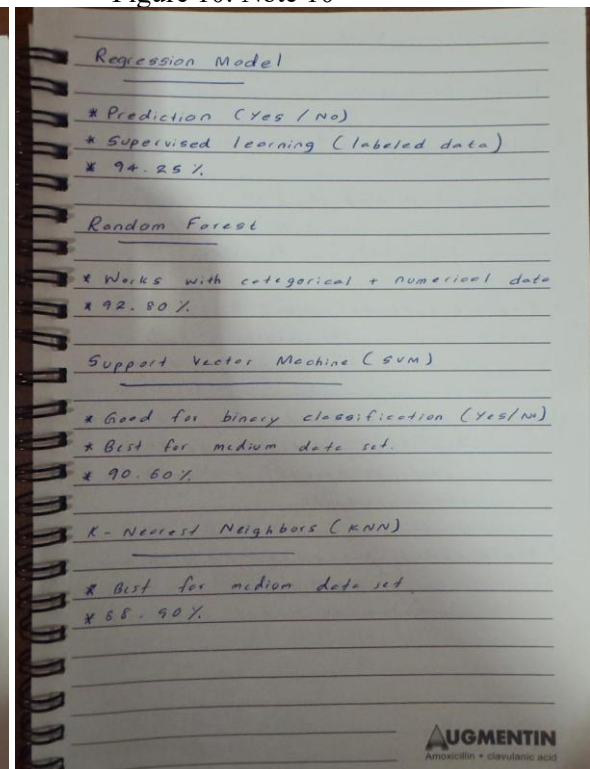 Figure 10: Note 10
Regression Model
* Prediction (Yes / No)
* Supervised learning (labeled data)
* 94.25 %.
Random Forest
* Works with categorical + numerical data
* 92.80 %.
Support Vector Machine (SVM)
* Good for binary classification (Yes/No)
* Best for medium data set.
* 90.60 %.
K-Nearest Neighbors (KNN)
* Best for medium data set.
* 88.90 %.
AUGMENTIN
Amoxicillin + clavulanic acid